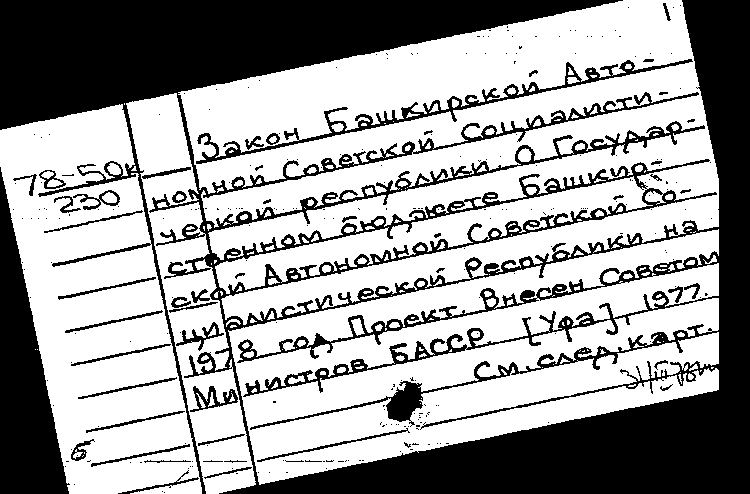 1
Закон Башкирской Авто-
78-50к
230
номной Советской Социалисти-
ческой республики. О Государ-
ственном бюджете Башкир-
ской Автономной Советской Со-
циалистической Республики на
1978 год. Проект. Внесен Советом
Министров БАССР. [Уфа], 1977.
См. след. карт.
Б